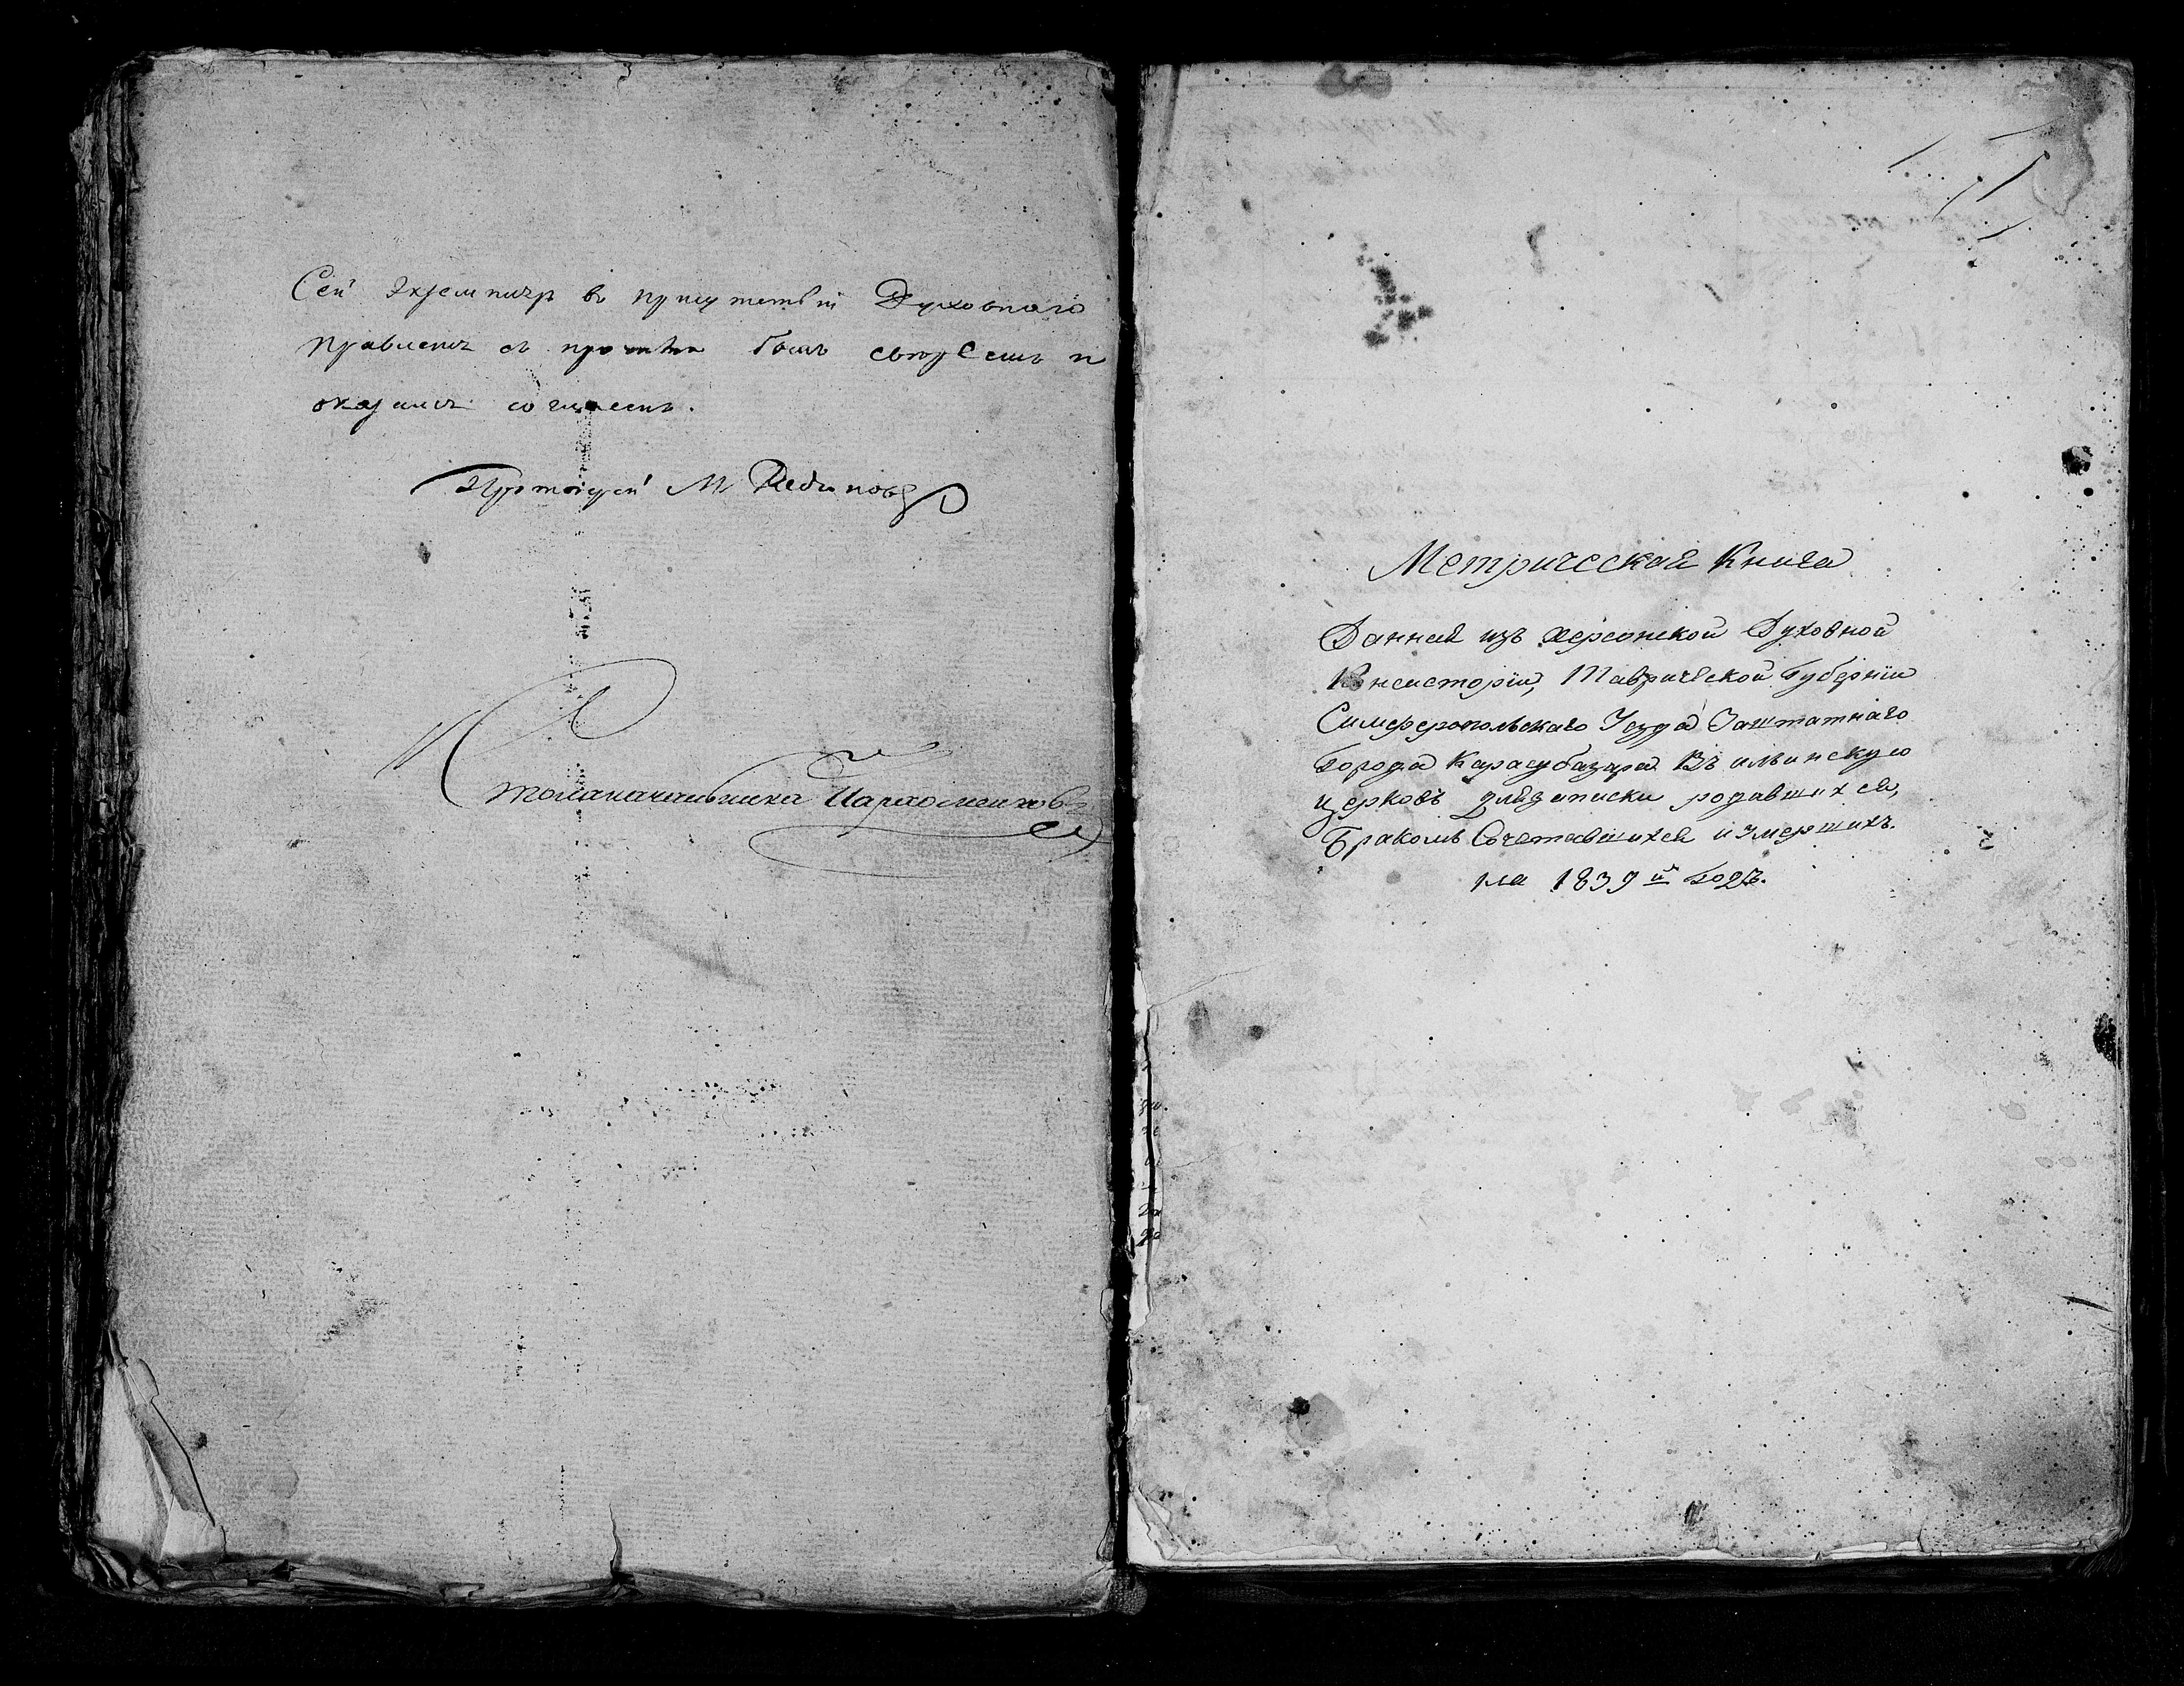 Сей экземпляръ въ присутствіи Духовнаго
Правленія съ прочтенъ былъ свѣренъ и
оказался согласенъ.
Протоіерей М Родіоновъ
Столоначальника Пархоменковъ
Метрическая Книга
Данная изъ Херсонской Духовной
Консисторіи, Таврической Губерніи
Симферопольскаго Уезда Заштатнаго
Города Карасубазара Въ ильинскую
церковь для записки родавшихся,
Бракомъ Сочетавшихся и Умершихъ.
на 1839й Годъ.